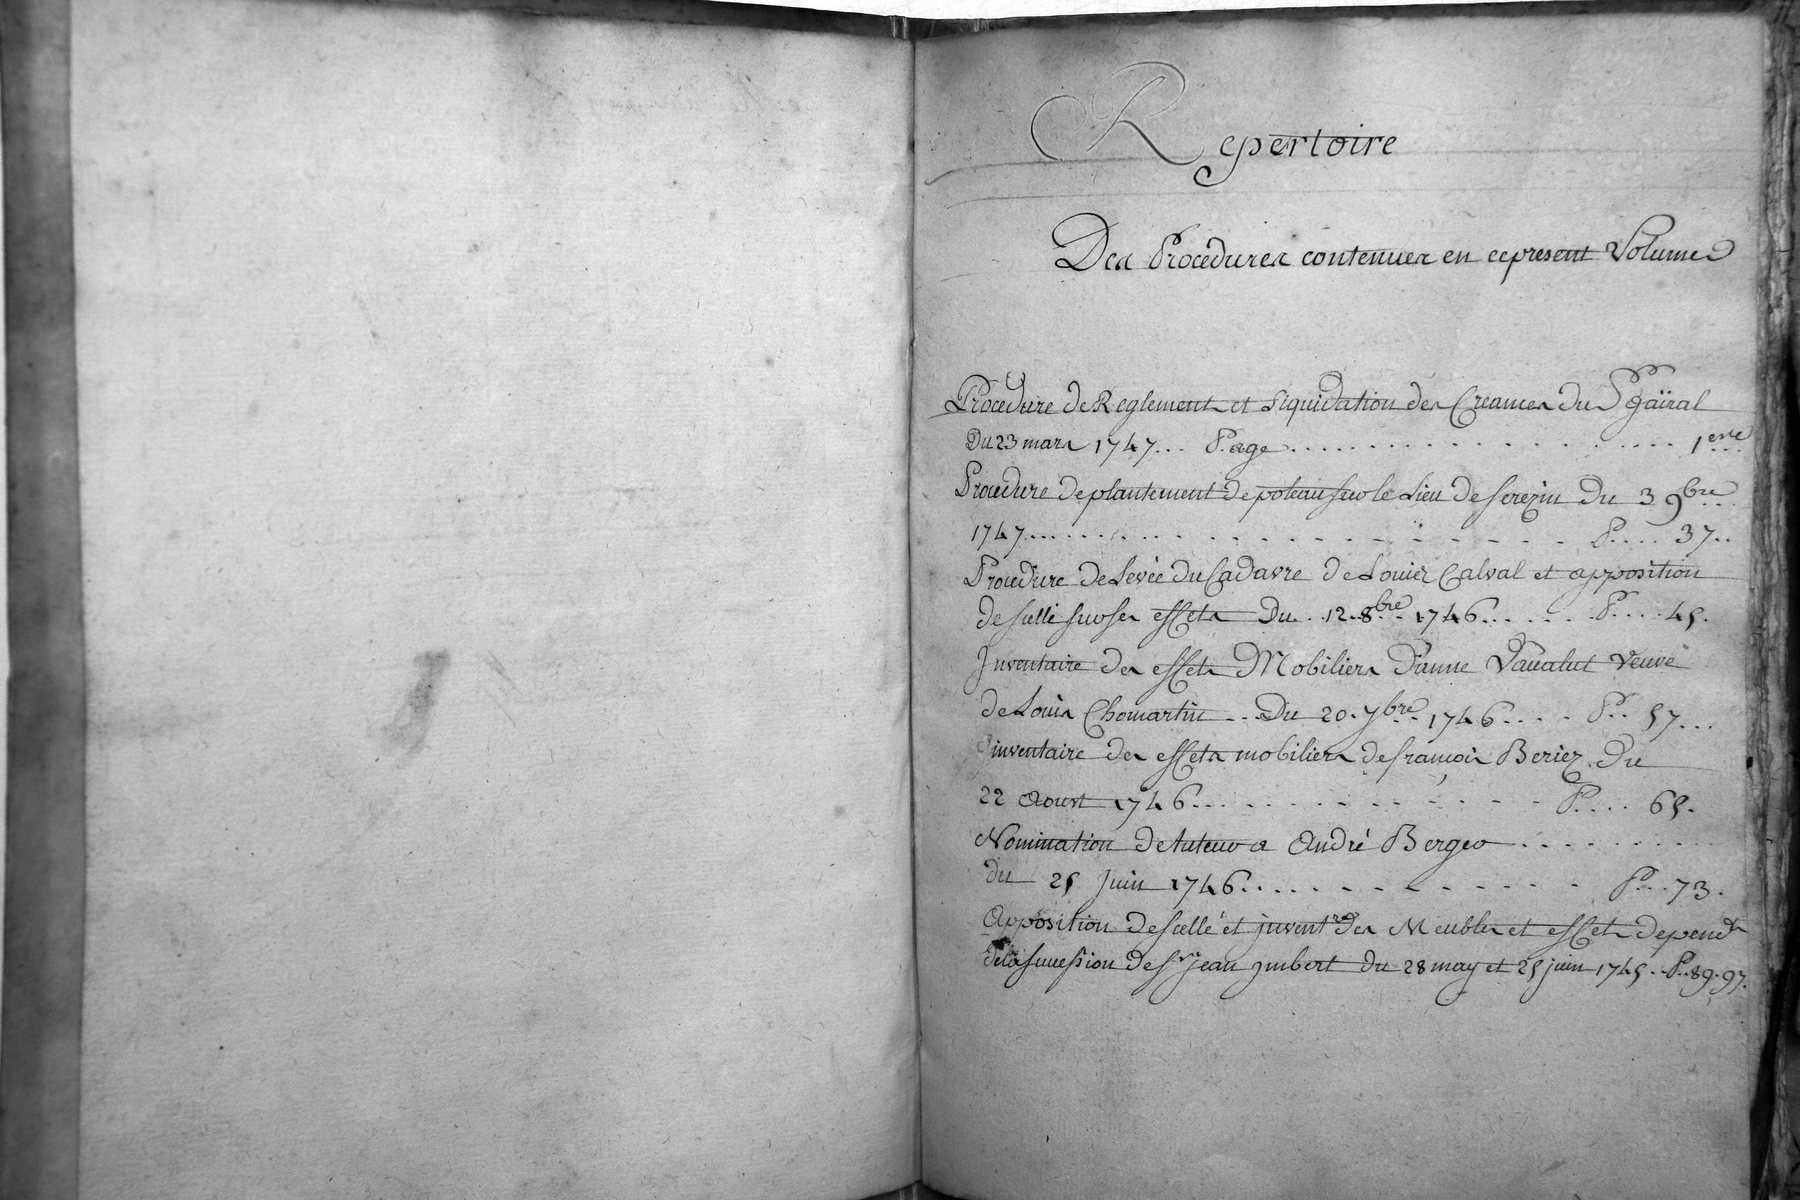 Repertoire
Des Procedures contenues en ce present Volume
Procedure de Reglement et Liquidation des Creances du Sr gaïral
Du 23 mars 1747... Page .................... 1ere
Procedure de plantement de poteau sur le Lieu de Serezin Du 3 9bre
1747................ P.... 37..
Procedure de Levée du Cadavre de Louiez Calval et apposition
de scellé sur ses effets Du..12.8bre 1746...... P.... 45.
Inventaire des effets Mobiliers D'anne veuve
de Louis Chomartin ... Du 20.7bre 1746.... P.. 57...
inventaire des effets mobiliers de francois Beriez Du
22 Aoust 1746............. P.... 65.
Nomination de tuteur a André Berger .........
du 25 Juin 1746............. P...73.
Apposition de scellé et invent.re des Meubles et effets depend.ts
de la succession de Sr Jean Imbert Du 28 may et 25 juin 1745..P..89.97.